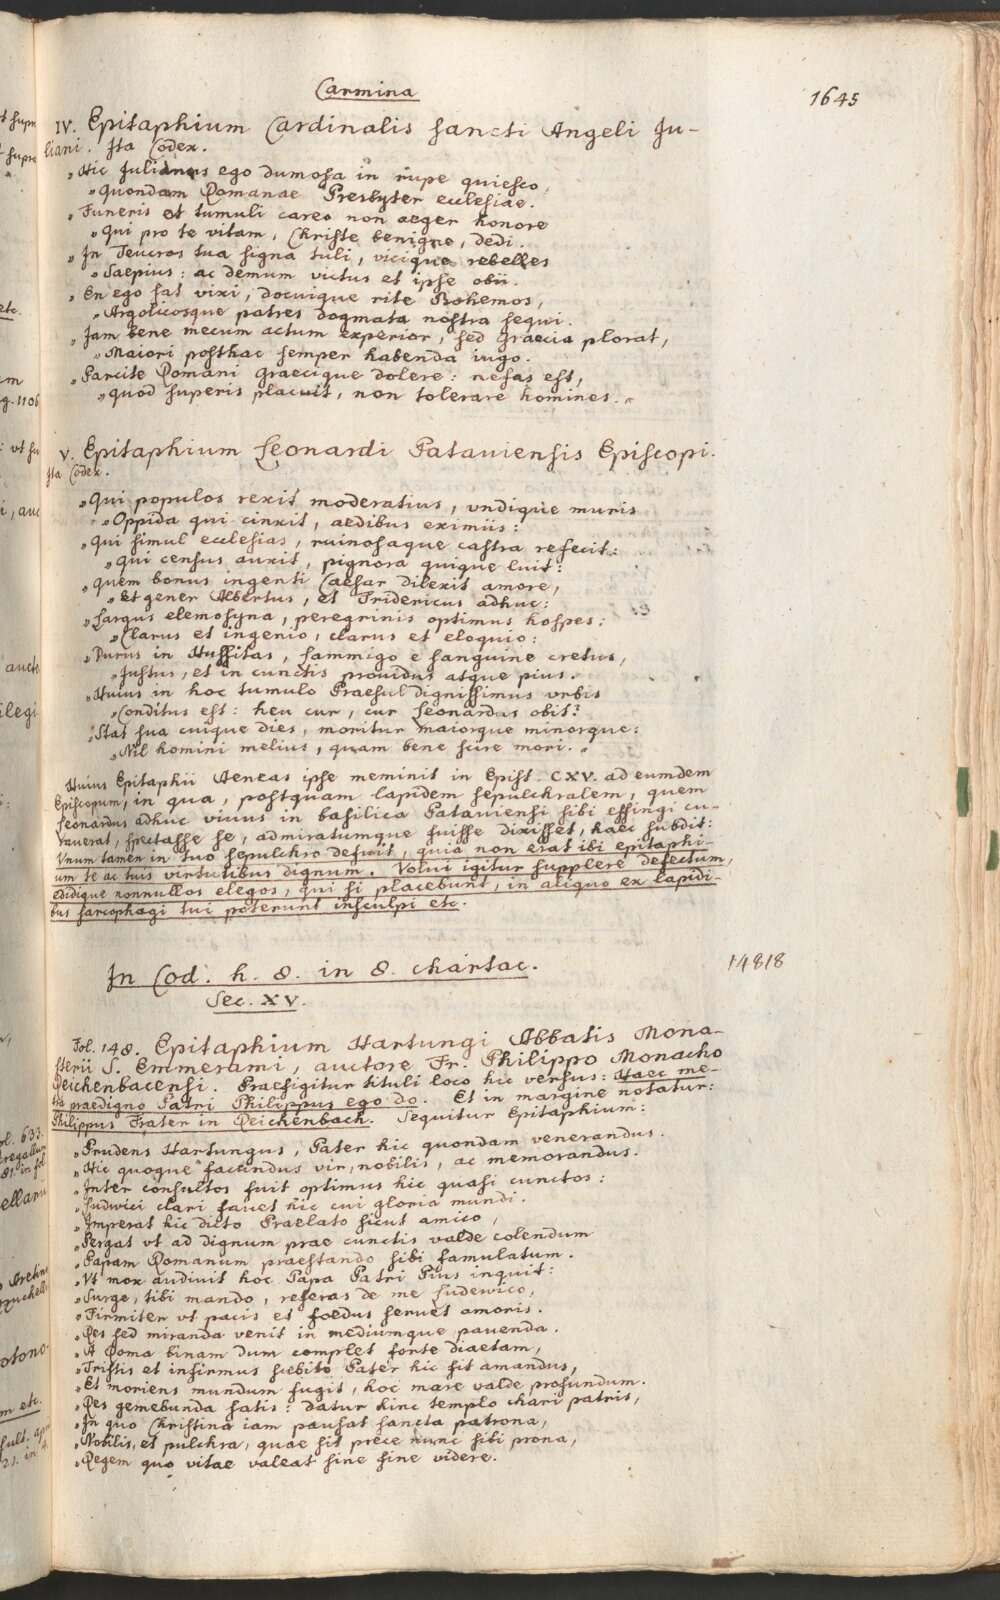 Carmina
1645
IV. Epitaphium Cardinalis sancti Angeli Ju-
liani. Ita Codex.
„Hic Julianus ego dumosa in rupe quiesco,
„quondam Romanae Presbyter ecclesiae.
„Funeris et tumuli careo non aeger honore
„qui pro te vitam, Christe benigne, dedi.
„In Teucros tua signa tuli, vicique rebelles
„Saepius: ac demum victus et ipse obii.
„En ego sat vixi, docuique rite Bohemos,
„Argolicosque patres dogmata nostra sequi.
„Jam bene mecum actum experior, sed Graecia plorat,
„Maiori posthac semper habenda iugo.
„Parcite Romani graecique dolere: nefas est,
„quod superis placuit, non tolerare homines.„
V. Epitaphium Leonardi Patauiensis Episcopi.
Ita Codex.
„Qui populos rexit moderatius, vndique muris
„Oppida qui cinxit, aedibus eximiis:
„qui simul ecclesias, ruinosaque castra refecit:
„qui census auxit, pignora quique luit:
„quem bonus ingenti Caesar dilexit amore,
„Et gener Albertus, et Fridericus adhuc:
„Largus elemosyna, peregrinis optimus hospes:
„Clarus et ingenio, clarus et eloquio:
„Durus in Hussitas, sammigo e sanguine cretus,
„Justus, et in cunctis prouidus atque pius.
„Huius in hoc tumulo Praesul dignissimus vrbis
„Conditus est: heu cur, cur Leonardus obit?
„Stat sua cuique dies, moritur maiorque minorque:
„Nil homini melius, quam bene scire mori.„
Huius Epitaphii Aeneas ipse meminit in Epist. CXV. ad eumdem
Episcopum, in qua, postquam lapidem sepulchralem, quem
Leonardus adhuc viuus in basilica Patauiensi sibi effingi cu-
rauerat, spectasse se, admiratumque fuisse dixisset, haec subdit:
Vnum tamen in tuo sepulchro defuit, quia non erat ibi epitaphi-
um te ac tuis virtutibus dignum. Volui igitur supplere defectum,
edidique nonnullos elegos, qui si placebunt, in aliquo ex lapidi-
bus sarcophagi tui poterunt insculpi etc.
In Cod. h. 8. in 8. chartac.
14818
Sec. XV.
Fol. 148. Epitaphium Hartungi Abbatis Mona-
sterii S. Emmerami, auctore Fr. Philippo Monacho
Reichenbacensi. Praefigitur tituli loco hic versus: Haec me-
tra praedigno Patri Philippus ego do. Et in margine notatur:
Philippus Frater in Reichenbach. Sequitur Epitaphium:
„Prudens Hartungus, Pater hic quondam venerandus.
„Hic quoque facundus vir, nobilis, ac memorandus.
„Inter consultos fuit optimus hic quasi cunctos:
„Ludwici clari fauet hic cui gloria mundi.
„Imperat hic dicto Praelato sicut amico,
„Pergat vt ad dignum prae cunctis valde colendum
„Papam Romanum praestando sibi famulatum.
„Vt mox audiuit hoc Papa Patri Pius inquit:
„Surge, tibi mando, referas de me Ludewico,
„Firmiter vt pacis et foedus seruet amoris.
„Res sed miranda venit in mediumque pauenda.
„A Roma binam dum complet forte diaetam,
„Tristis et infirmus subito Pater hic sit amandus,
„Et moriens mundum fugit, hoc mare valde profundum.
„Res gemebunda satis: datur hinc templo chari patris,
„In quo Christina iam pausat sancta patrona,
„Nobilis, et pulchra, quae sit prece nunc sibi prona,
„Regem quo vitae valeat sine fine videre.